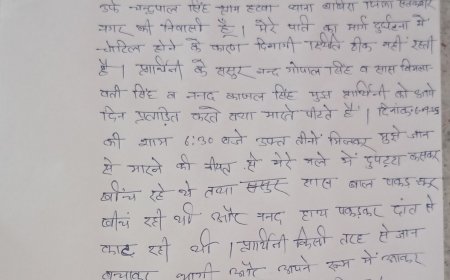 उर्फ चन्द्रपाल सिंह ग्राम हटवा थाना
नगर की निवासी है। मेरे पति का मार्ग दुर्घटना में
चोटिल होने के कारण दिमागी स्थिति ठीक नहीं रहती
है। प्रार्थिनी के ससुर चन्द गोपाल सिंह व सास विमला
वती सिंह व ननद काजल सिंह मुझ प्रार्थिनी को आये
दिन प्रताड़ित करते तथा मारते पीटते हैं। दिनांक
की शाम 6:30 बजे उक्त तीनों मिलकर मुझे जान
से मारने की नीयत से मेरे गले में दुपट्टा कसकर
खींच रहे थे तथा ससुर सास बाल पकड़ कर
खींच रही थी और ननद हाथ पकड़कर दांत से
काट रही थी। प्रार्थिनी किसी तरह से जान
बचाकर भागी और अपने रूम में आकर